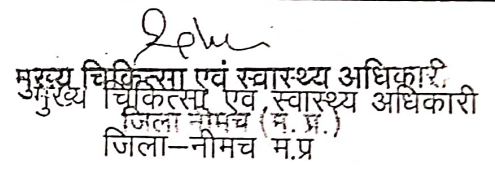 मुख्य चिकित्सा एवं स्वास्थ्य अधिकारी
मुख्य चिकित्सा एवं स्वास्थ्य अधिकारी
जिला नीमच (म. प्र.)
जिला–नीमच म.प्र